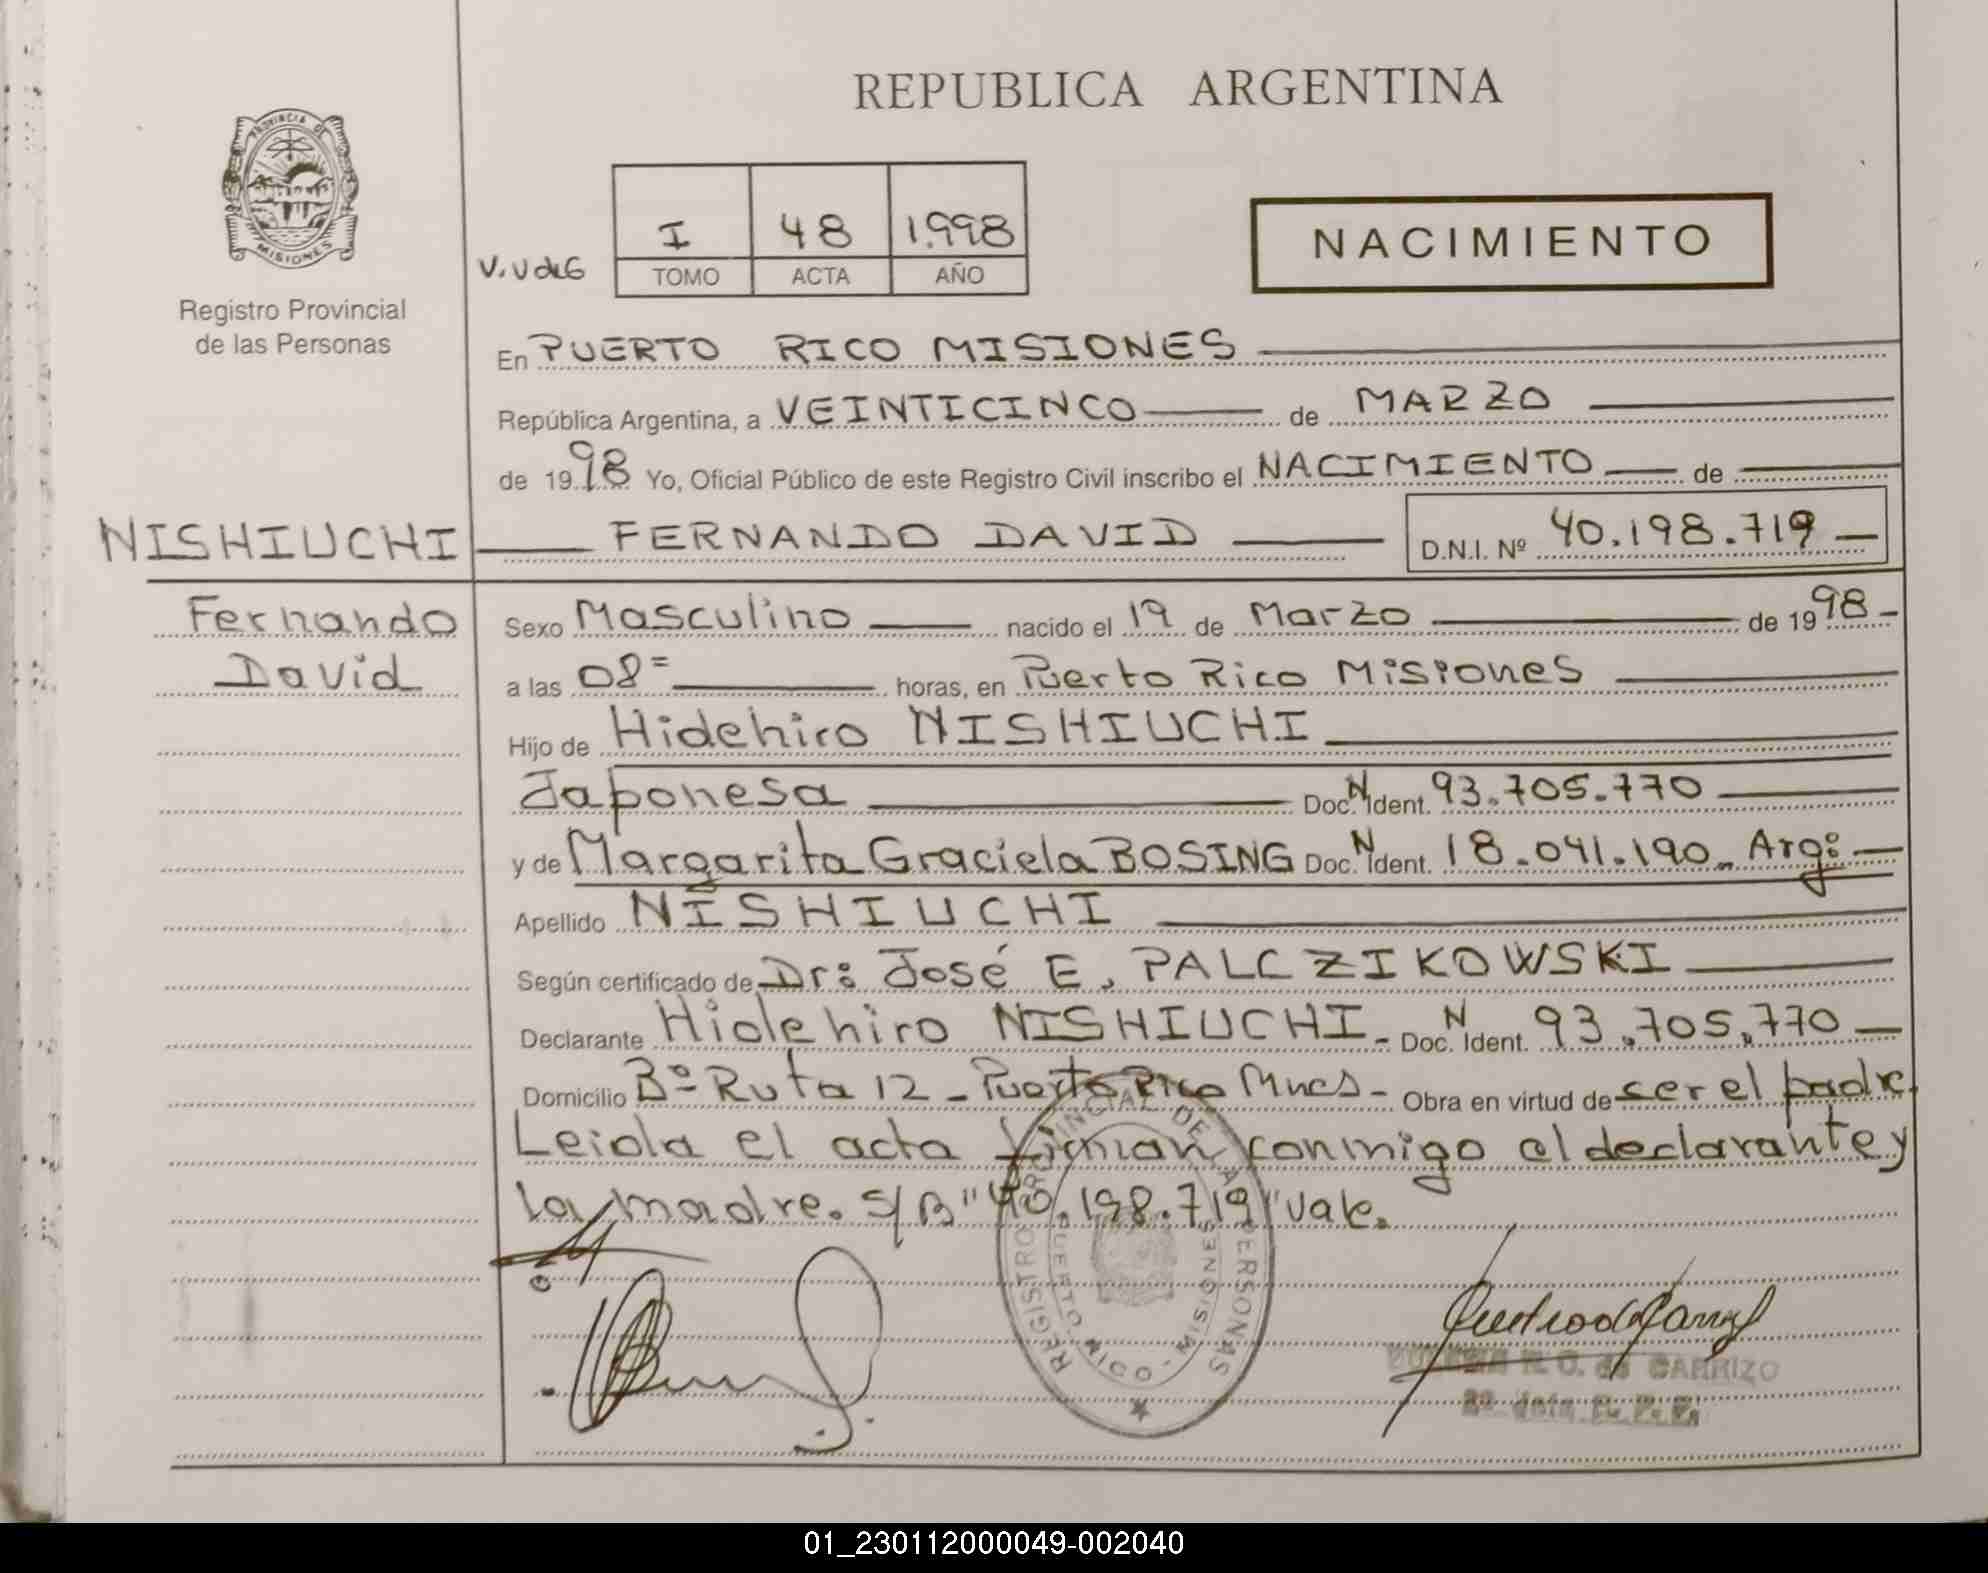 REPUBLICA ARGENTINA
PROVINCIA DE
MISIONES
Registro Provincial
de las Personas
V.V de G
I 48 1.998
TOMO ACTA AÑO
NACIMIENTO
En PUERTO RICO MISIONES
República Argentina, a VEINTICINCO de MARZO
de 1998 Yo, Oficial Público de este Registro Civil inscribo el NACIMIENTO de
NISHIUCHI FERNANDO DAVID D.N.I. Nº 40.198.719
Fernando Sexo Masculino nacido el 19 de Marzo de 1998
David a las 08= horas, en Puerto Rico Misiones
Hijo de Hidehiro NISHIUCHI
Japonesa Doc. N Ident. 93.705.770
y de Margarita Graciela BOSING Doc. N Ident. 18.041.190. Arg:
Apellido NISHIUCHI
Según certificado de Dr: José E. PALCZIKOWSKI
Declarante Hidehiro NISHIUCHI - Doc. N Ident. 93.705.770
Domicilio Bº Ruta 12 - Puerto Rico Mnes - Obra en virtud de ser el padre.
Leida el acta firman conmigo el declarante y
la madre. S/B "40.198.719" Vale.
REGISTRO PROVINCIAL DE LAS PERSONAS
PUERTO RICO - MISIONES
R. O. de CARRIZO